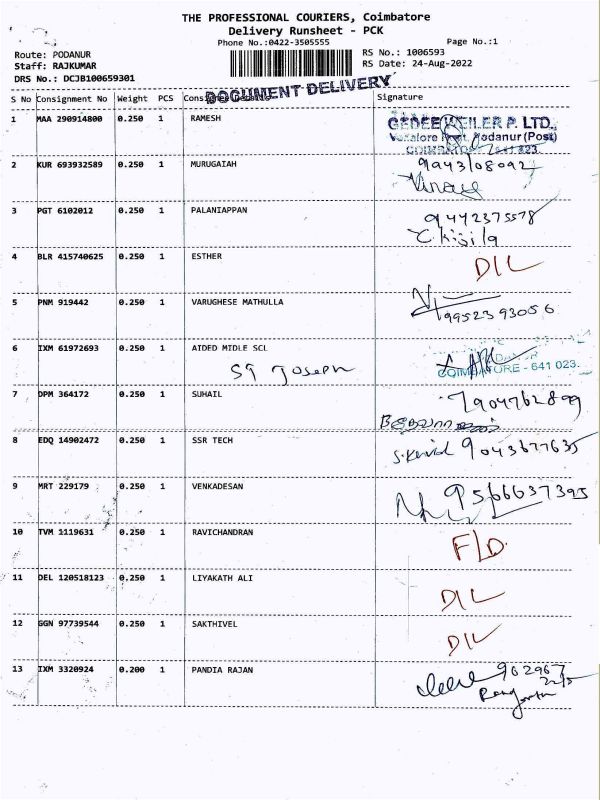 THE PROFESSIONAL COURIERS, Coimbatore
Delivery Runsheet - PCK
Phone No.:0422-3505555
Page No.:1
Route: PODANUR
RS No.: 1006593
Staff: RAJKUMAR
RS Date: 24-Aug-2022
DRS No.: DCJB100659301
DOCUMENT DELIVERY
S No Consignment No Weight PCS Signature
1 MAA 290914800 0.250 1 RAMESH
GEDEE WEILER P. LTD.,
Podanur (Post)
COIMBATORE - 641 023.
2 KUR 693932589 0.250 1 MURUGAIAH 9943108092
3 PGT 6102012 0.250 1 PALANIAPPAN 9442375578
4 BLR 415740625 0.250 1 ESTHER D/L
5 PNM 919442 0.250 1 VARUGHESE MATHULLA 9952393056
6 IXM 61972693 0.250 1 AIDED MIDLE SCL
ST Joseph COIMBATORE - 641 023.
7 DPM 364172 0.250 1 SUHAIL 7904762899
8 EDQ 14902472 0.250 1 SSR TECH 9043677635
9 MRT 229179 0.250 1 VENKADESAN 9566637395
10 TVM 1119631 0.250 1 RAVICHANDRAN F/D.
11 DEL 120518123 0.250 1 LIYAKATH ALI D/L
12 GGN 97739544 0.250 1 SAKTHIVEL D/L
13 IXM 3320924 0.200 1 PANDIA RAJAN 902967